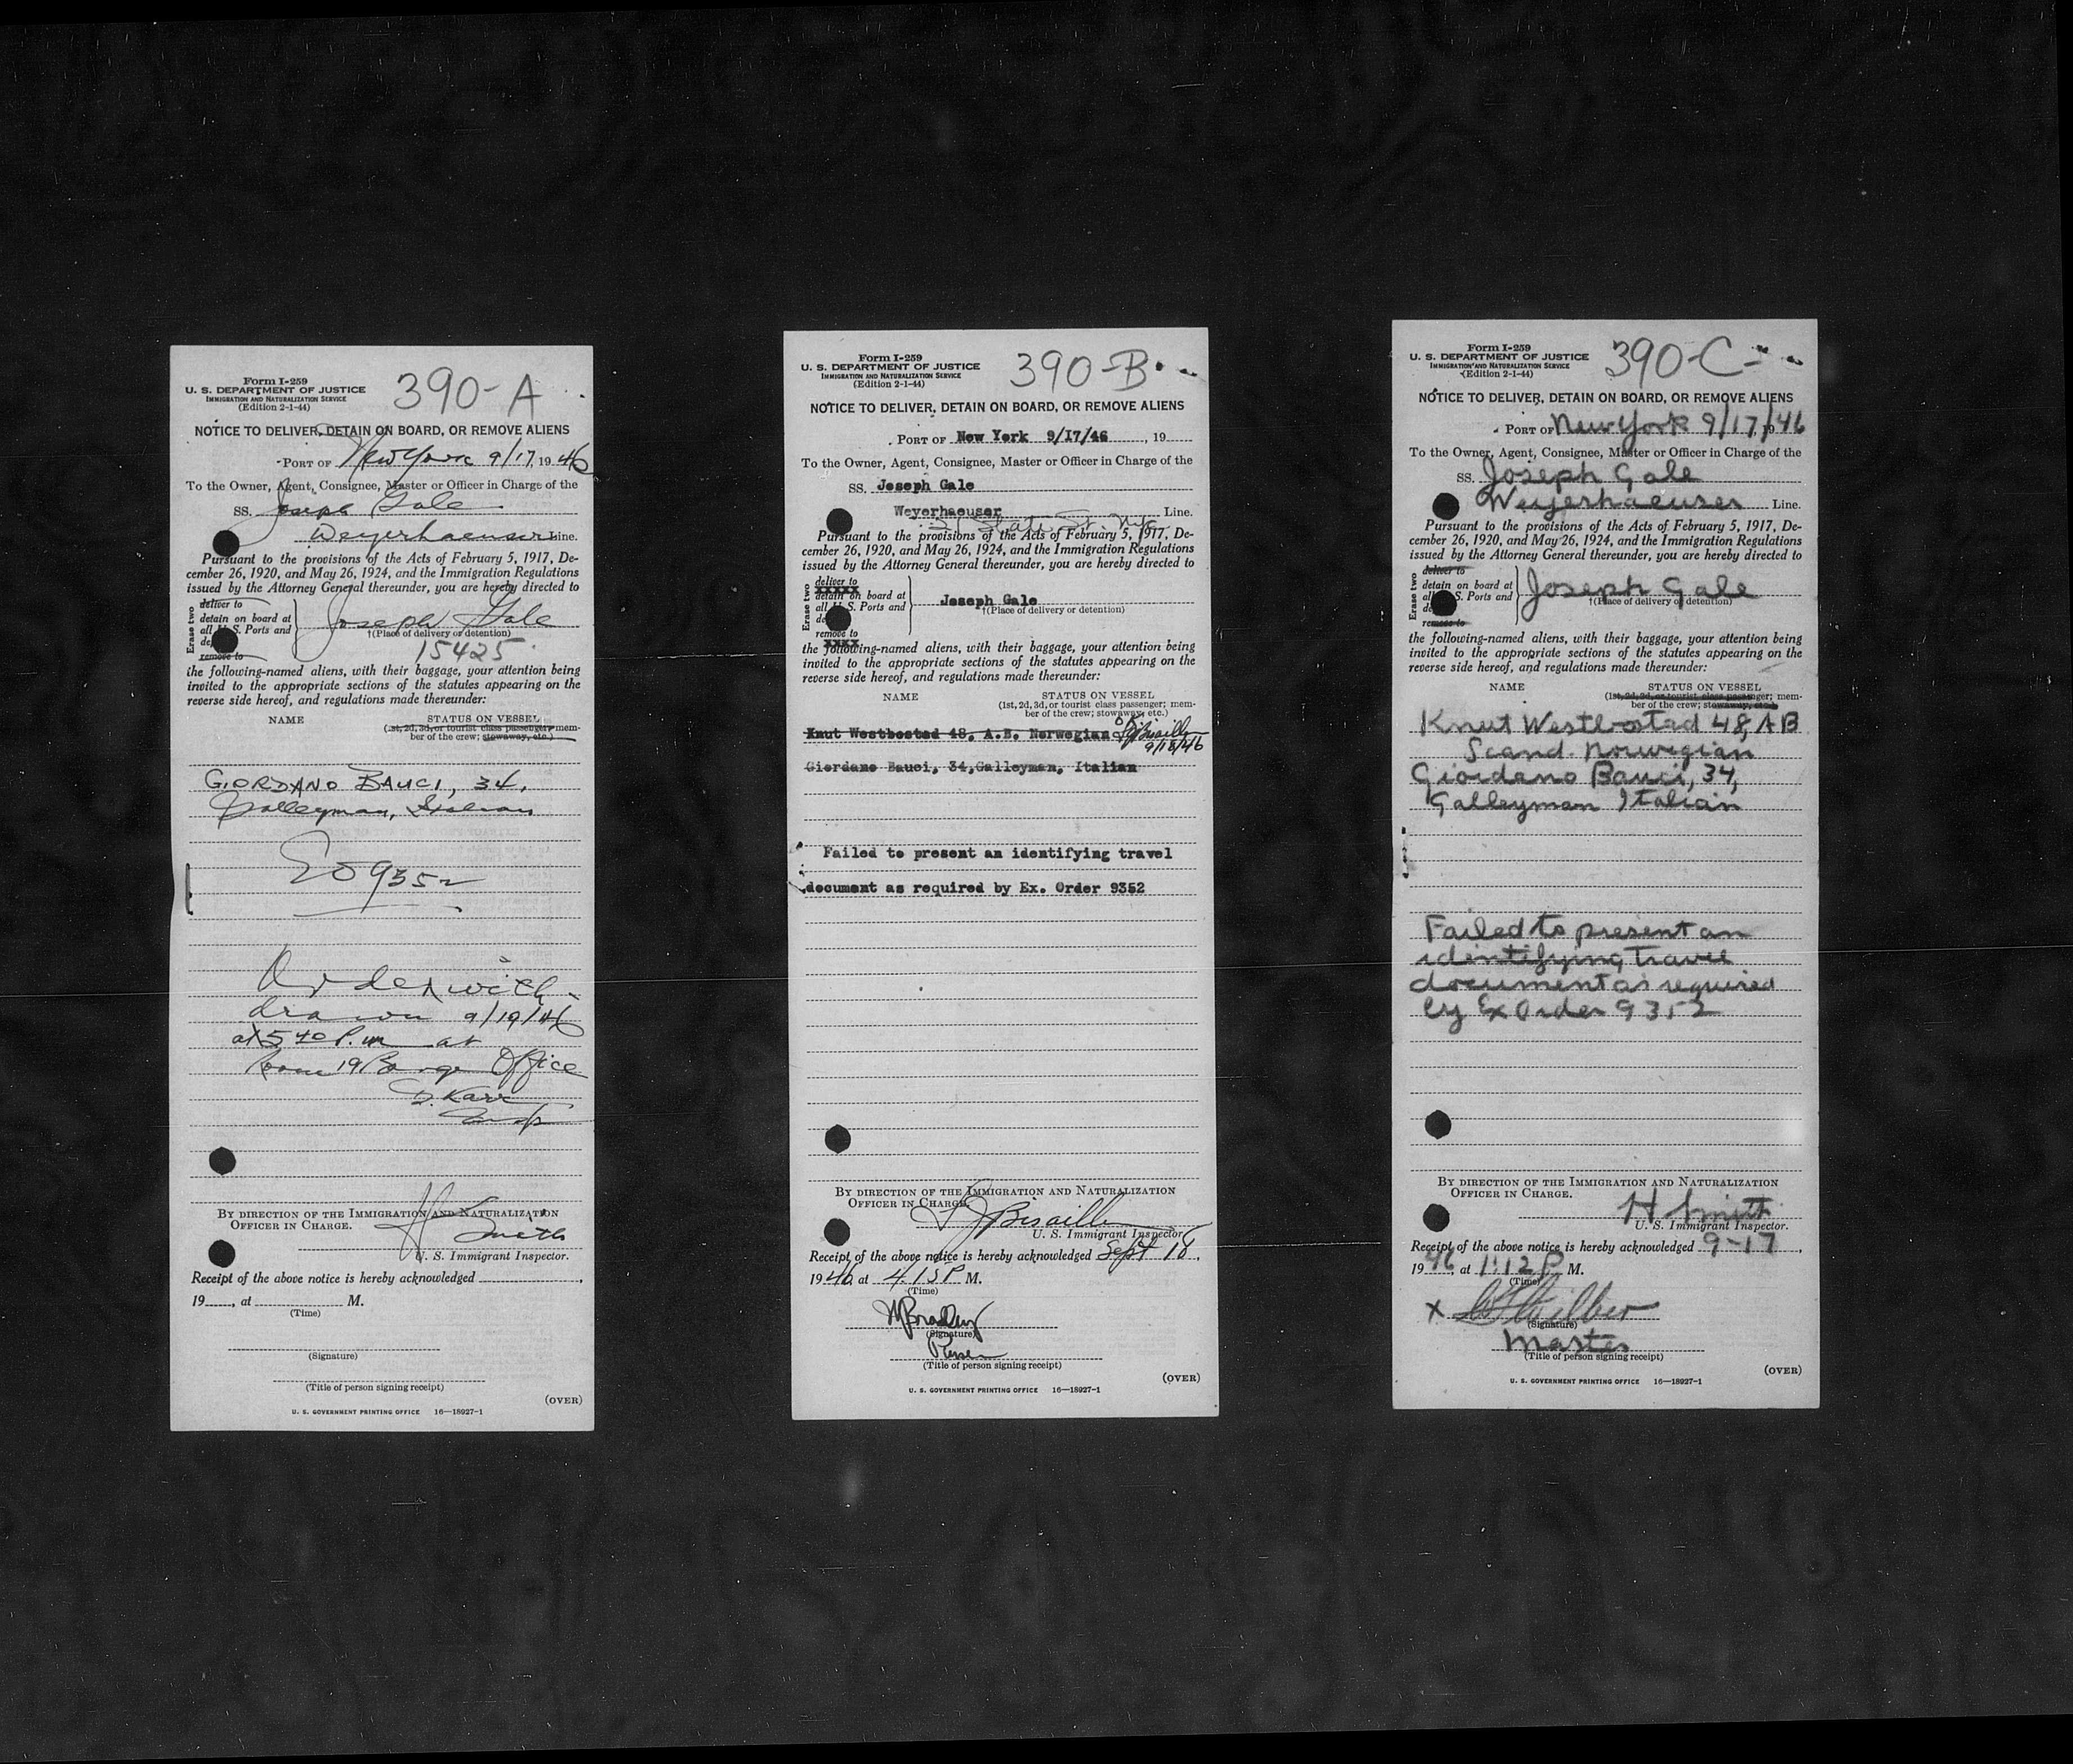 Form I-259
U. S. DEPARTMENT OF JUSTICE
IMMIGRATION AND NATURALIZATION SERVICE
(Edition 2-1-44)
390-A
NOTICE TO DELIVER, DETAIN ON BOARD, OR REMOVE ALIENS
PORT OF New York 9/17, 1946
To the Owner, Agent, Consignee, Master or Officer in Charge of the
SS. Joseph Gale
Weyerhaeuser Line.
Pursuant to the provisions of the Acts of February 5, 1917, De-
cember 26, 1920, and May 26, 1924, and the Immigration Regulations
issued by the Attorney General thereunder, you are hereby directed to
Erase two
deliver to
detain on board at
all U. S. Ports and
remove to
Joseph Gale
†(Place of delivery or detention)
15425
the following-named aliens, with their baggage, your attention being
invited to the appropriate sections of the statutes appearing on the
reverse side hereof, and regulations made thereunder:
NAME STATUS ON VESSEL
(1st, 2d, 3d, or tourist class passenger; mem-
ber of the crew; stowaway, etc.)
GIORDANO BAUCI, 34,
Galleyman, Italian
EO 9352
Order with-
drawn 9/19/46
at 5 40 P.m. at
Room 19 Barge Office
S. Karr
Insp
BY DIRECTION OF THE IMMIGRATION AND NATURALIZATION
OFFICER IN CHARGE.
H Smith
U. S. Immigrant Inspector.
Receipt of the above notice is hereby acknowledged
19 , at M.
(Time)
(Signature)
(Title of person signing receipt)
(OVER)
U. S. GOVERNMENT PRINTING OFFICE 16—18927-1
Form I-259
U. S. DEPARTMENT OF JUSTICE
IMMIGRATION AND NATURALIZATION SERVICE
(Edition 2-1-44)
390-B
NOTICE TO DELIVER, DETAIN ON BOARD, OR REMOVE ALIENS
PORT OF New York 9/17/46, 19
To the Owner, Agent, Consignee, Master or Officer in Charge of the
SS. Joseph Gale
Weyerhaeuser Line.
21 State St. NYC
Pursuant to the provisions of the Acts of February 5, 1917, De-
cember 26, 1920, and May 26, 1924, and the Immigration Regulations
issued by the Attorney General thereunder, you are hereby directed to
Erase two
deliver to
xxxxx
detain on board at
all U. S. Ports and
remove to
xxxx
Joseph Gale
†(Place of delivery or detention)
the following-named aliens, with their baggage, your attention being
invited to the appropriate sections of the statutes appearing on the
reverse side hereof, and regulations made thereunder:
NAME STATUS ON VESSEL
(1st, 2d, 3d, or tourist class passenger; mem-
ber of the crew; stowaway, etc.)
Knut Westbostad 48, A.B. Norwegian
9/18/46
Giordano Bauci, 34, Galleyman, Italian
Failed to present an identifying travel
document as required by Ex. Order 9352
BY DIRECTION OF THE IMMIGRATION AND NATURALIZATION
OFFICER IN CHARGE.
U. S. Immigrant Inspector.
Receipt of the above notice is hereby acknowledged Sept 18,
1946, at 4.15 P M.
(Time)
M Bradley
(Signature)
(Title of person signing receipt)
(OVER)
U. S. GOVERNMENT PRINTING OFFICE 16—18927-1
Form I-259
U. S. DEPARTMENT OF JUSTICE
IMMIGRATION AND NATURALIZATION SERVICE
(Edition 2-1-44)
390-C
NOTICE TO DELIVER, DETAIN ON BOARD, OR REMOVE ALIENS
PORT OF New York 9/17/46
To the Owner, Agent, Consignee, Master or Officer in Charge of the
SS. Joseph Gale
Weyerhaeuser Line.
Pursuant to the provisions of the Acts of February 5, 1917, De-
cember 26, 1920, and May 26, 1924, and the Immigration Regulations
issued by the Attorney General thereunder, you are hereby directed to
Erase two
deliver to
detain on board at
all U. S. Ports and
remove to
Joseph Gale
†(Place of delivery or detention)
the following-named aliens, with their baggage, your attention being
invited to the appropriate sections of the statutes appearing on the
reverse side hereof, and regulations made thereunder:
NAME STATUS ON VESSEL
(1st, 2d, 3d, or tourist class passenger; mem-
ber of the crew; stowaway, etc.)
Knut Westbostad 48, AB
Scand. Norwegian
Giordano Bauci, 34,
Galleyman Italian
Failed to present an
identifying travel
document as required
by Ex Order 9352
BY DIRECTION OF THE IMMIGRATION AND NATURALIZATION
OFFICER IN CHARGE.
H Smith
U. S. Immigrant Inspector.
Receipt of the above notice is hereby acknowledged 9-17,
1946, at 1:12 P M.
(Time)
X Wilber
(Signature)
Master
(Title of person signing receipt)
(OVER)
U. S. GOVERNMENT PRINTING OFFICE 16—18927-1